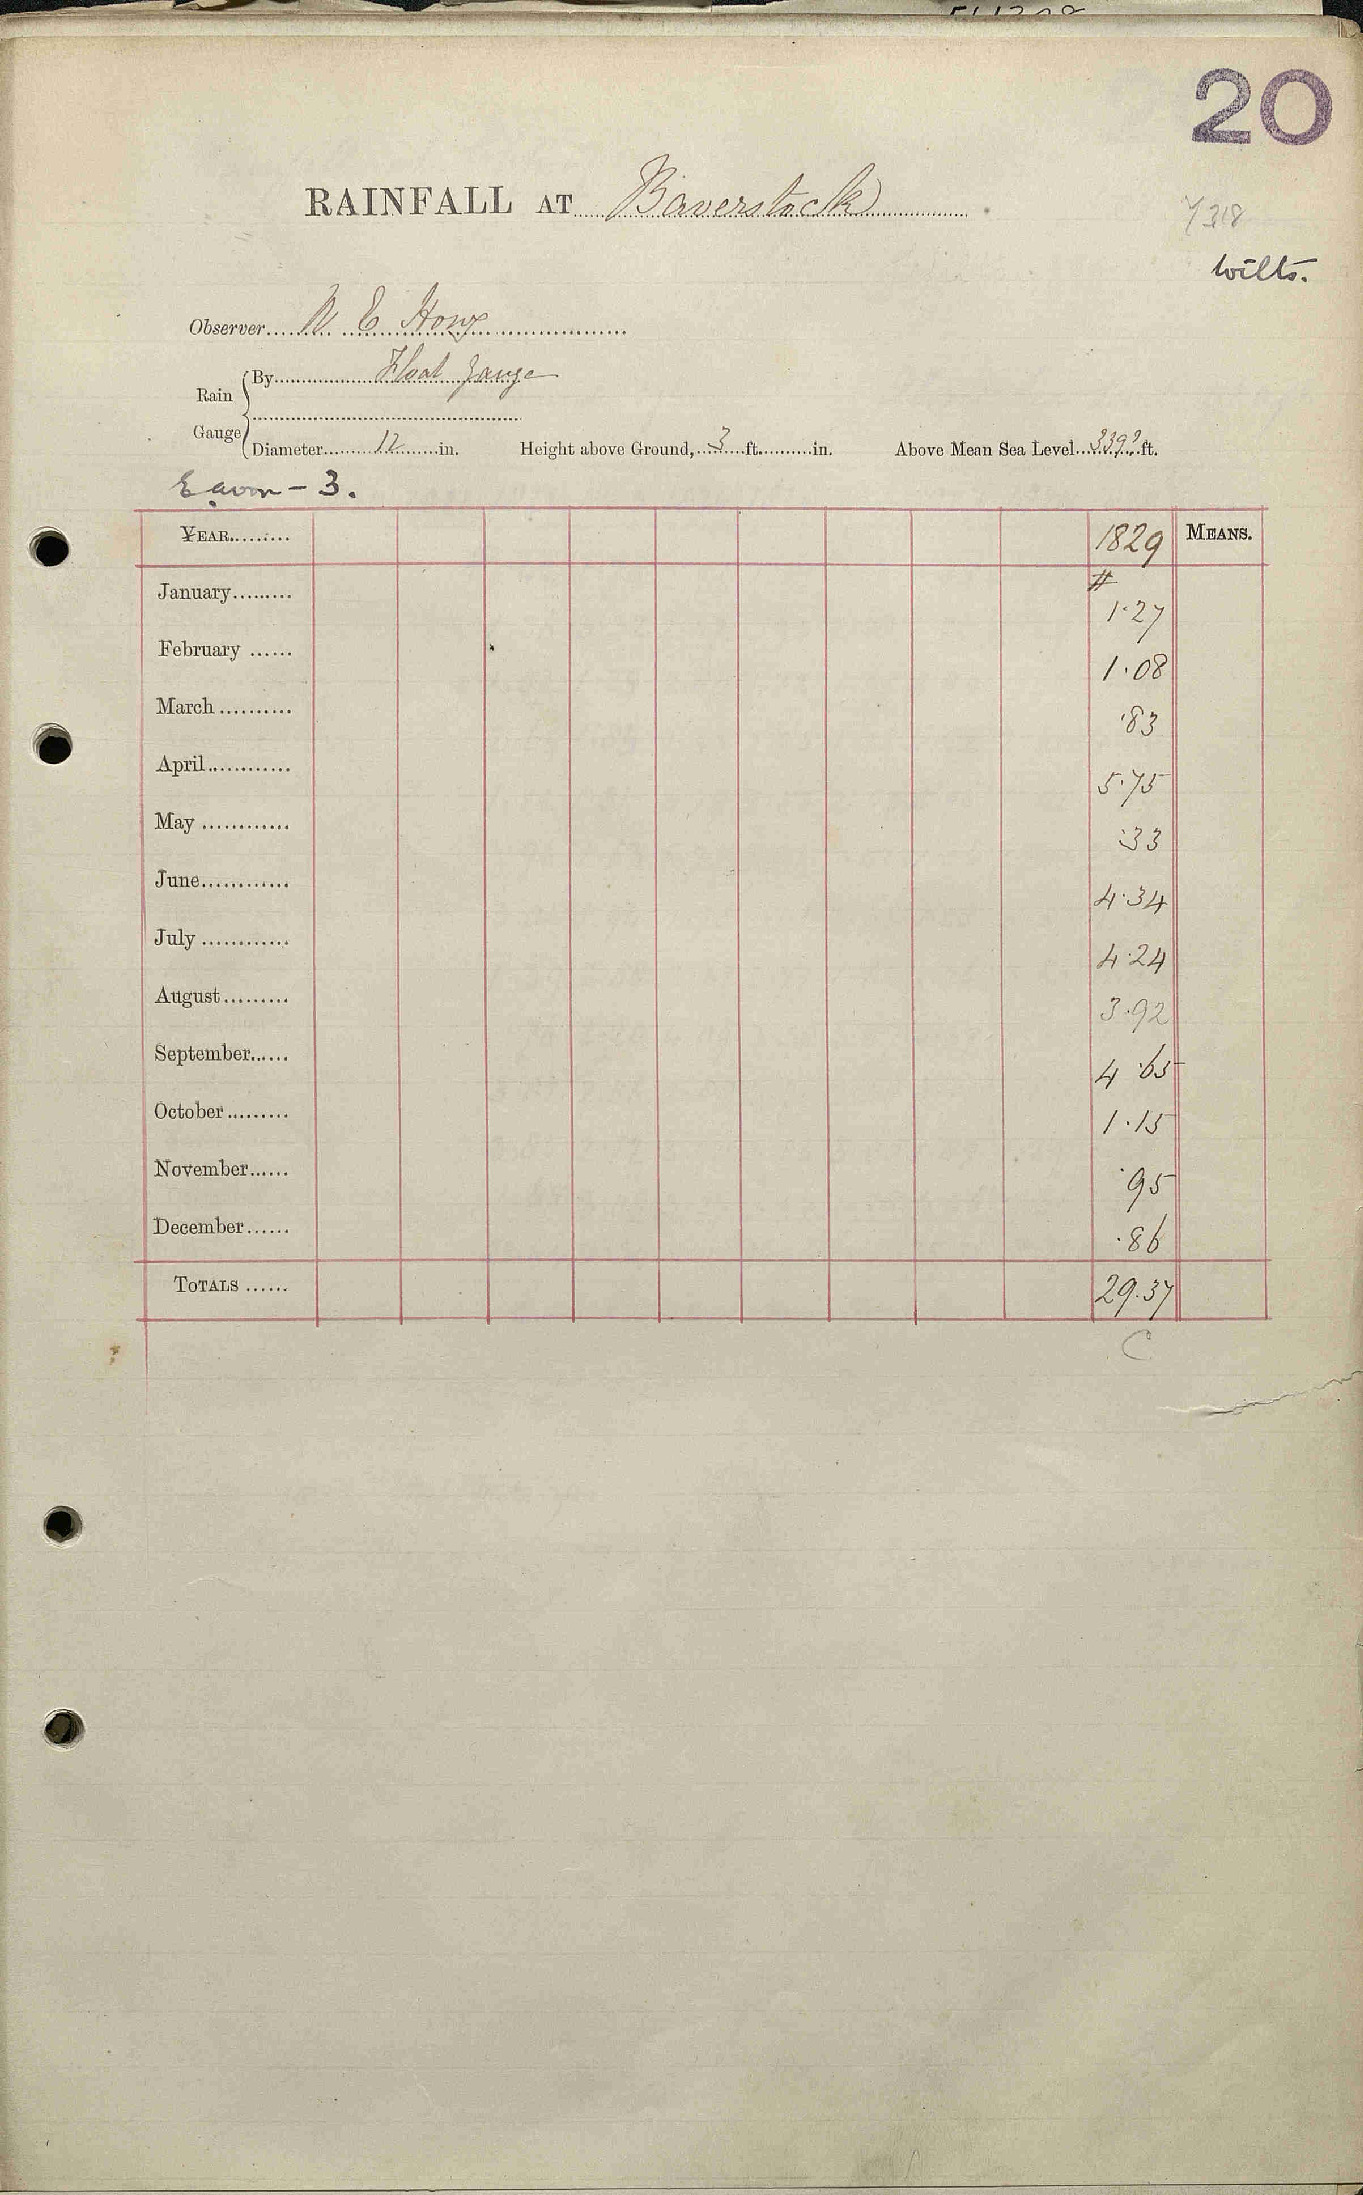 20
RAINFALL AT Baverstock
7318
Wilts.
Observer N E Hony
Rain Gauge { By Float Gauge
Diameter 12 in. Height above Ground, 3 ft. in. Above Mean Sea Level 339? ft.
E. avon - 3.
YEAR 1829 MEANS.
#
January 1.27
February 1.08
March .83
April 5.75
May .33
June 4.34
July 4.24
August 3.92
September 4.65
October 1.15
November .95
December .86
TOTALS 29.37
C